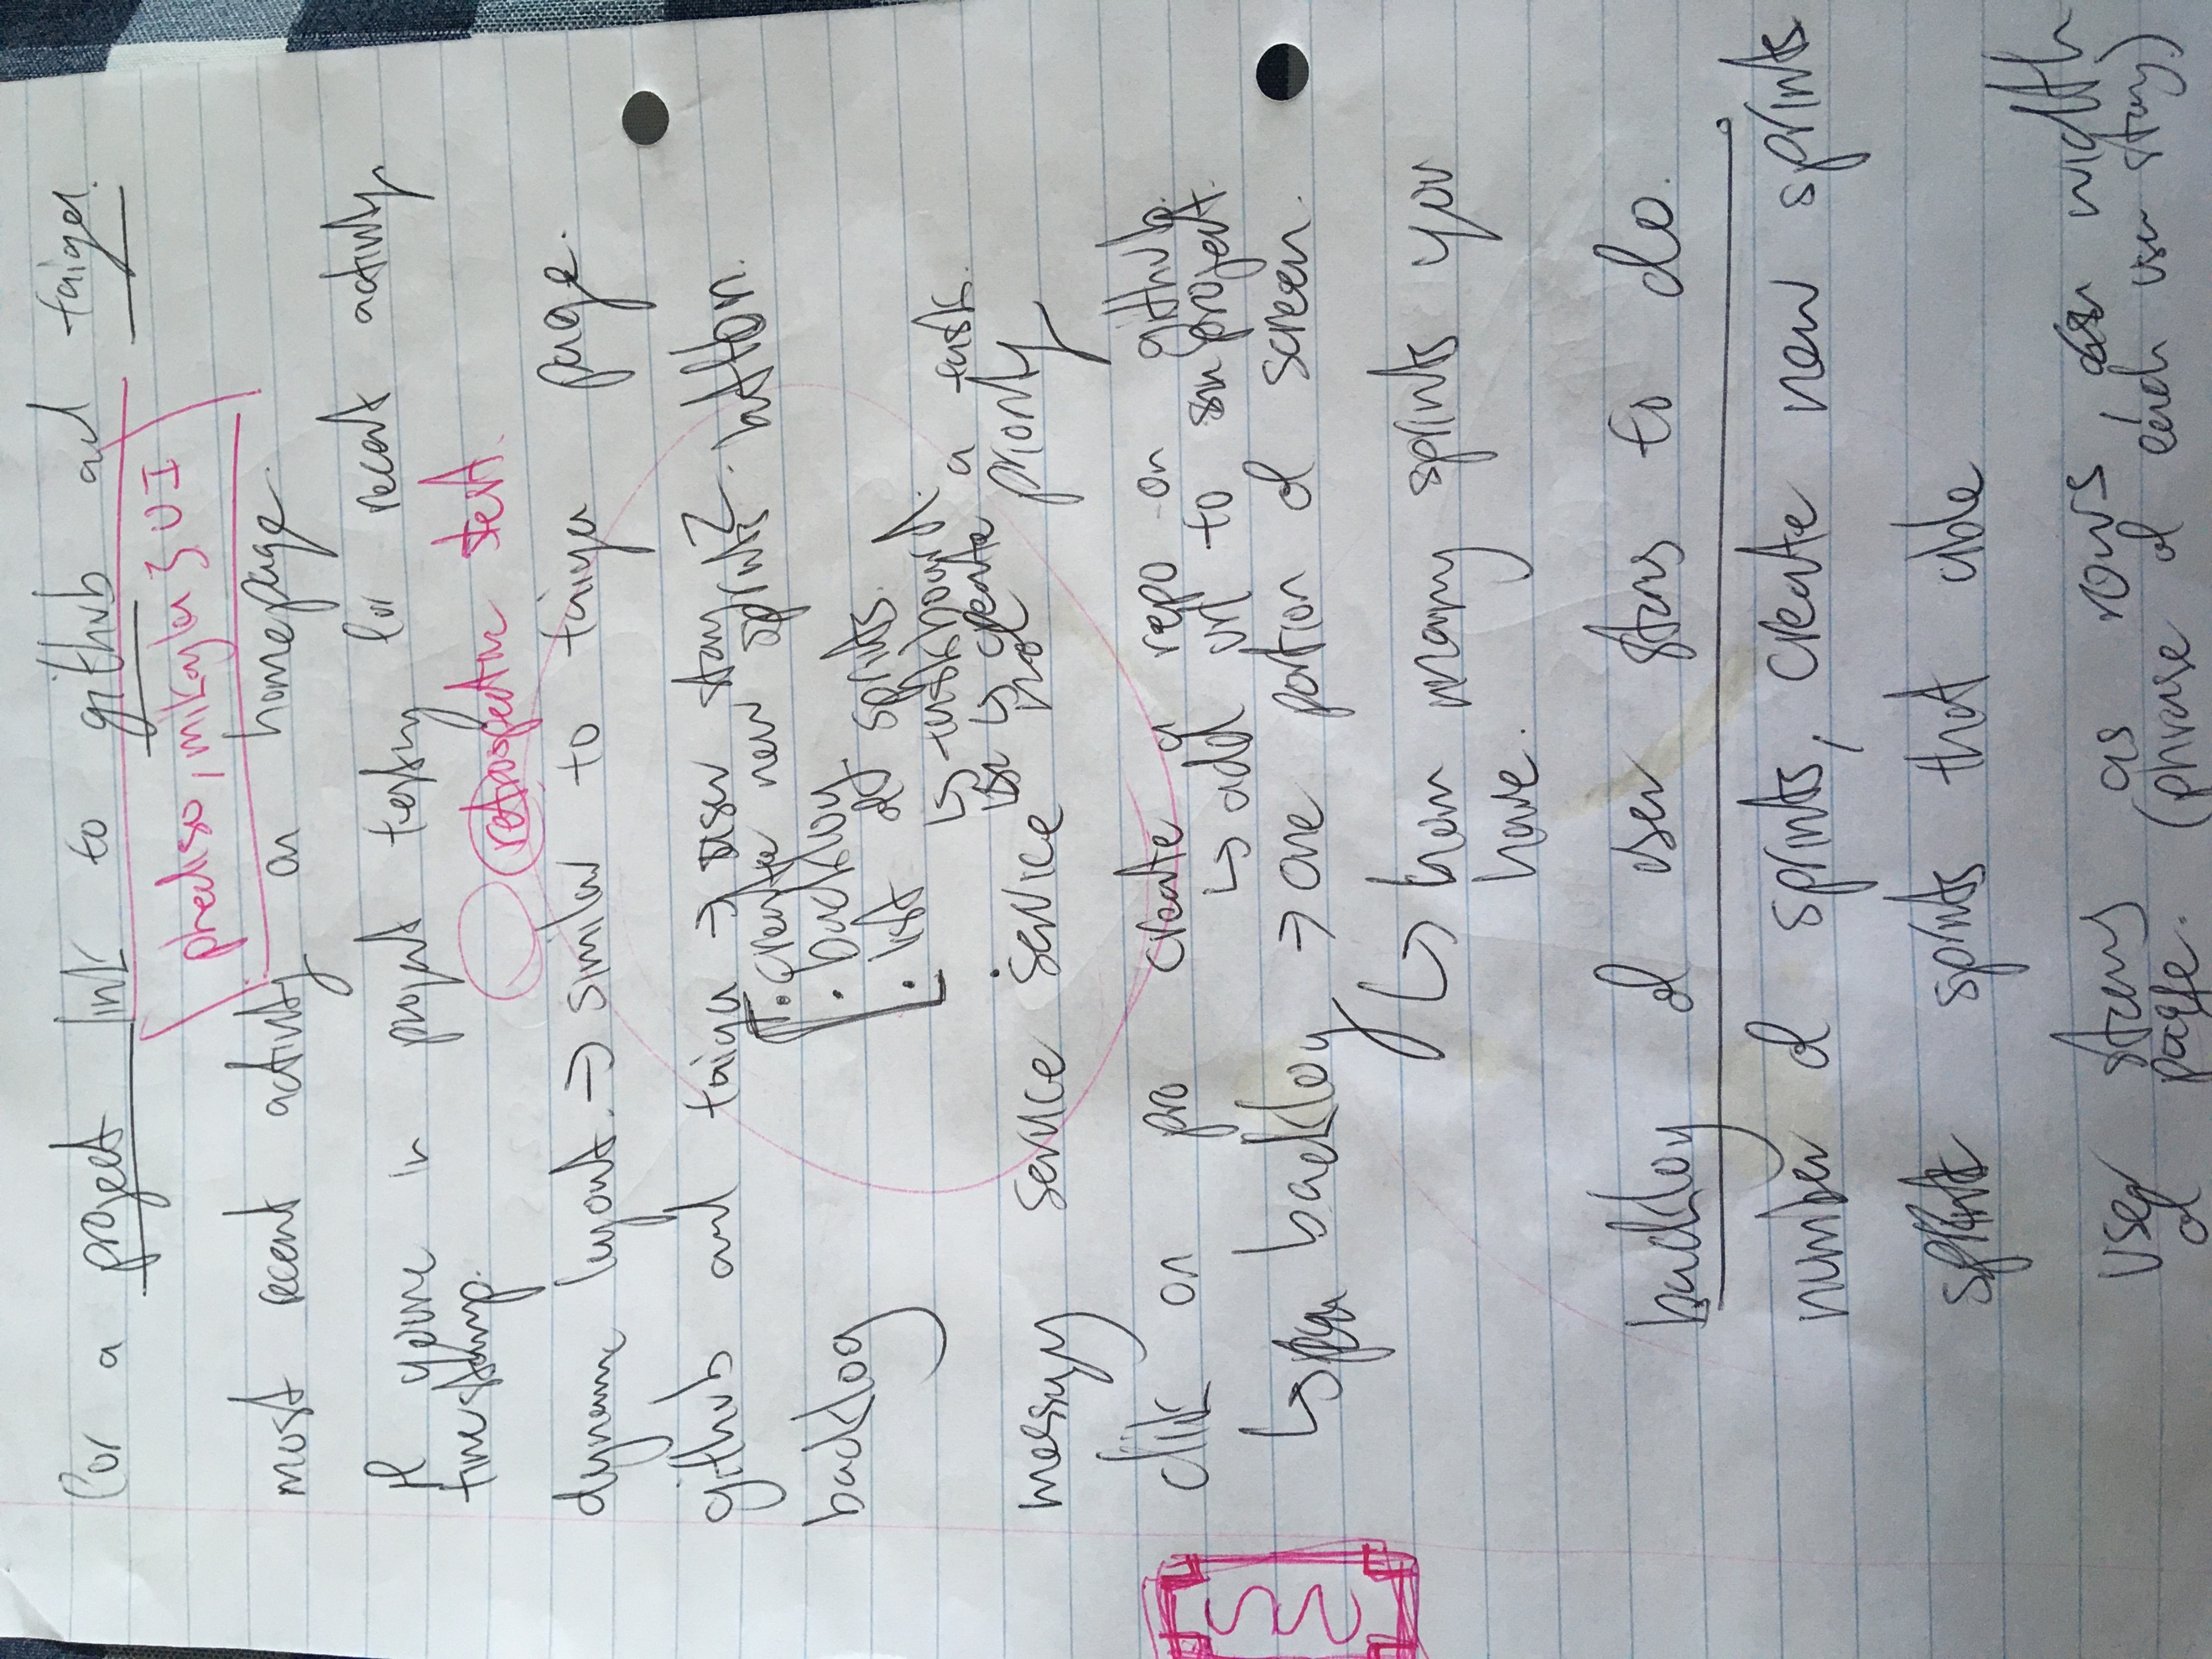 for a project link to github and taiga.
phediso, mikayla } UI
most recent activity on homepage
if youre in project taskny for recent activity
timestamp.
retrospective text.
dynamic layout. → similar to taiga page.
github and taiga → user story? button.
• create new sprints
backlog
• backlog
• list of sprints.
↳ taskboard.
↳ create a task.
messaging service service no priority
click on pro create a repo on github.
↳ add url to project.
↳ backlog → one portion of screen.
↳ how many sprints you
have.
backlog of user stories to do.
number of sprints, create new sprints
sprints that
user stories as rows width
of page. (phrase of each user story)